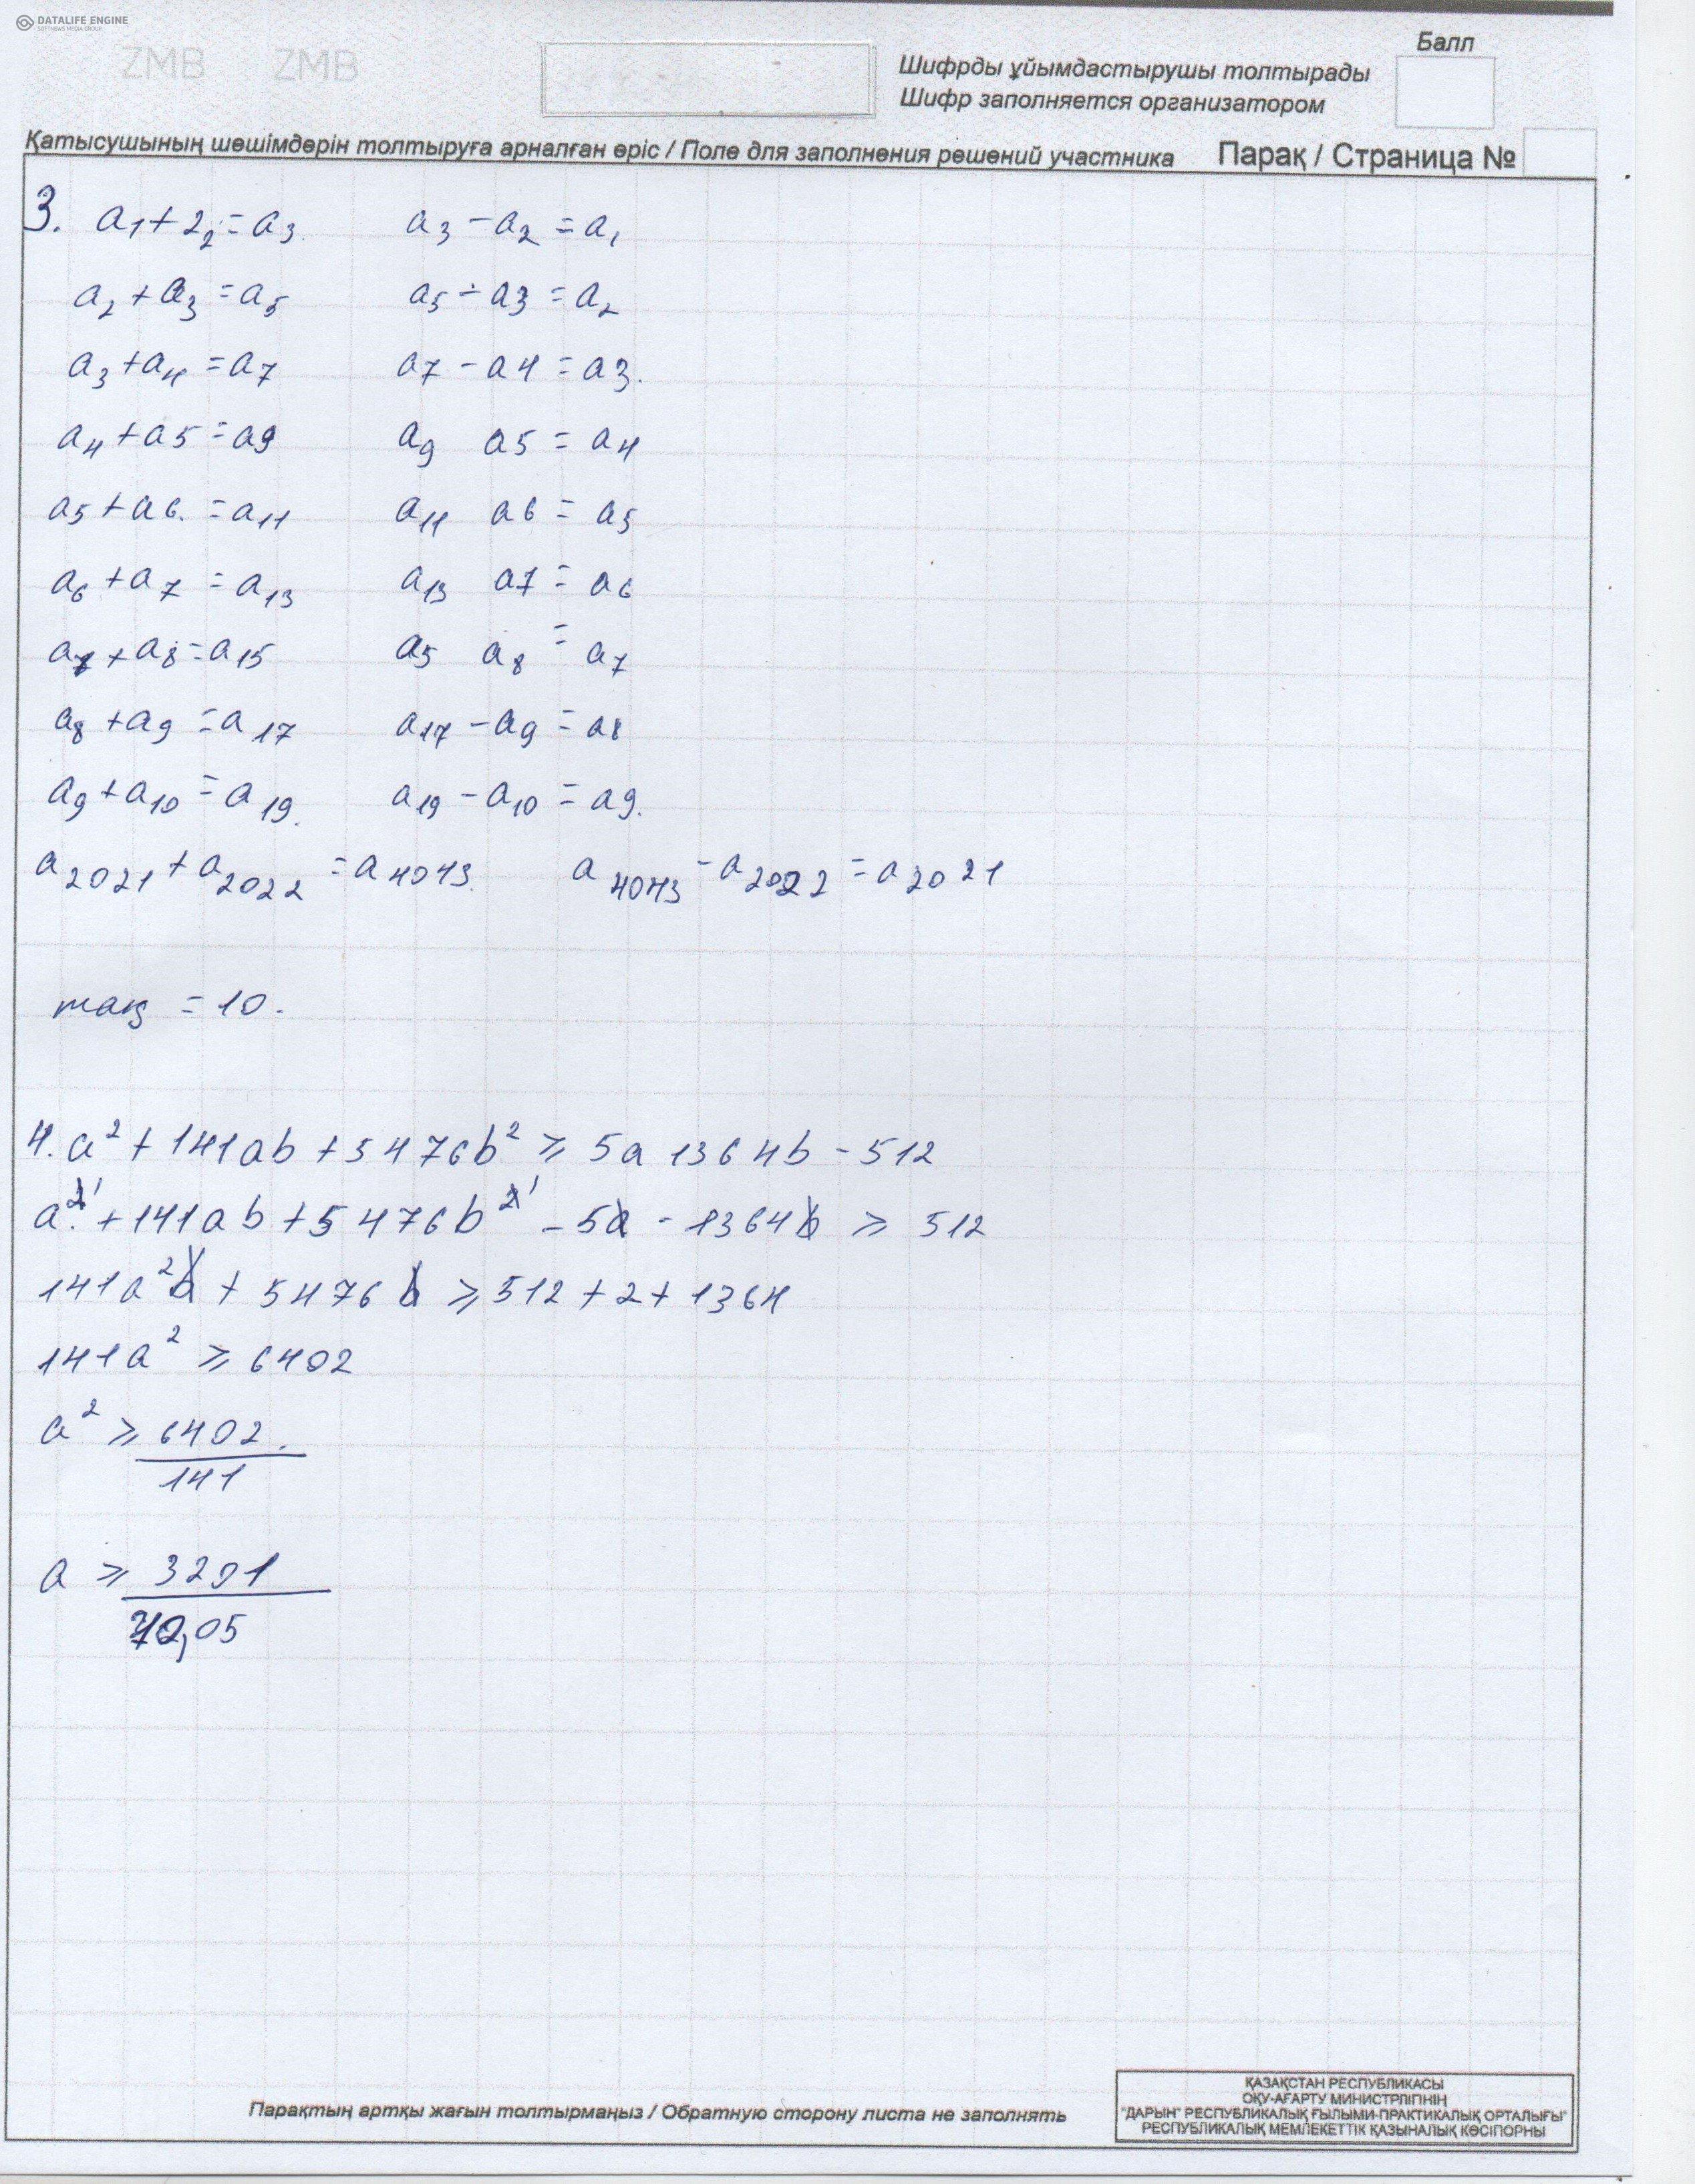 DATALIFE ENGINE
SOFTNEWS MEDIA GROUP
ZMB ZMB
Балл
Шифрды ұйымдастырушы толтырады
Шифр заполняется организатором
Қатысушының шешімдерін толтыруға арналған өріс / Поле для заполнения решений участника Парақ / Страница №
3. a₁+2₂=a₃. a₃-a₂=a₁
a₂+a₃=a₅ a₅-a3=a₂
a₃+a₄=a₇ a₇-a4=a3.
a₄+a5=a9 a₉ a5=a₄
a₅+a6.=a₁₁ a₁₁ a6=a₅
a₆+a₇=a₁₃ a₁₃ a7=a₆
a₇+a₈=a₁₅ a₅ a₈=a₇
a₈+a₉=a₁₇ a₁₇-a₉=a₈
a₉+a₁₀=a₁₉. a₁₉-a₁₀=a₉.
a₂₀₂₁+a₂₀₂₂=a₄₀₄₃. a₄₀₄₃-a₂₀₂₂=a₂₀₂₁
тақ = 10.
4. a²+141ab+5476b² ≥ 5a 1364b-512
a²'+141ab+5476b²'-5a-1364b ≥ 512
141a²b+5476b ≥ 512+2+1364
141a² ≥ 6402
a² ≥ 6402.
141
a ≥ 3201
70,05
Парақтың артқы жағын толтырмаңыз / Обратную сторону листа не заполнять
ҚАЗАҚСТАН РЕСПУБЛИКАСЫ
ОҚУ-АҒАРТУ МИНИСТРЛІГІНІҢ
"ДАРЫН" РЕСПУБЛИКАЛЫҚ ҒЫЛЫМИ-ПРАКТИКАЛЫҚ ОРТАЛЫҒЫ"
РЕСПУБЛИКАЛЫҚ МЕМЛЕКЕТТІК ҚАЗЫНАЛЫҚ КӘСІПОРНЫ